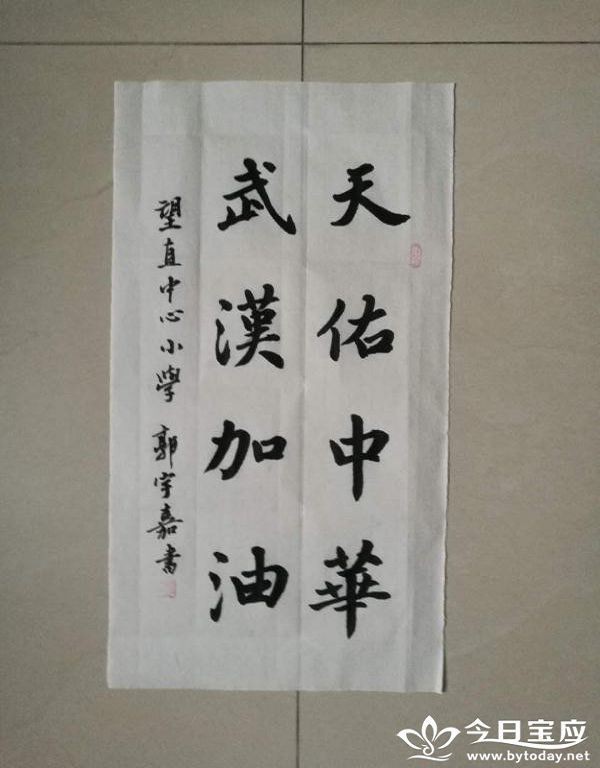 天佑中華
武漢加油
望直中心小學 郭宇嘉書
今日宝应
www.bytoday.net